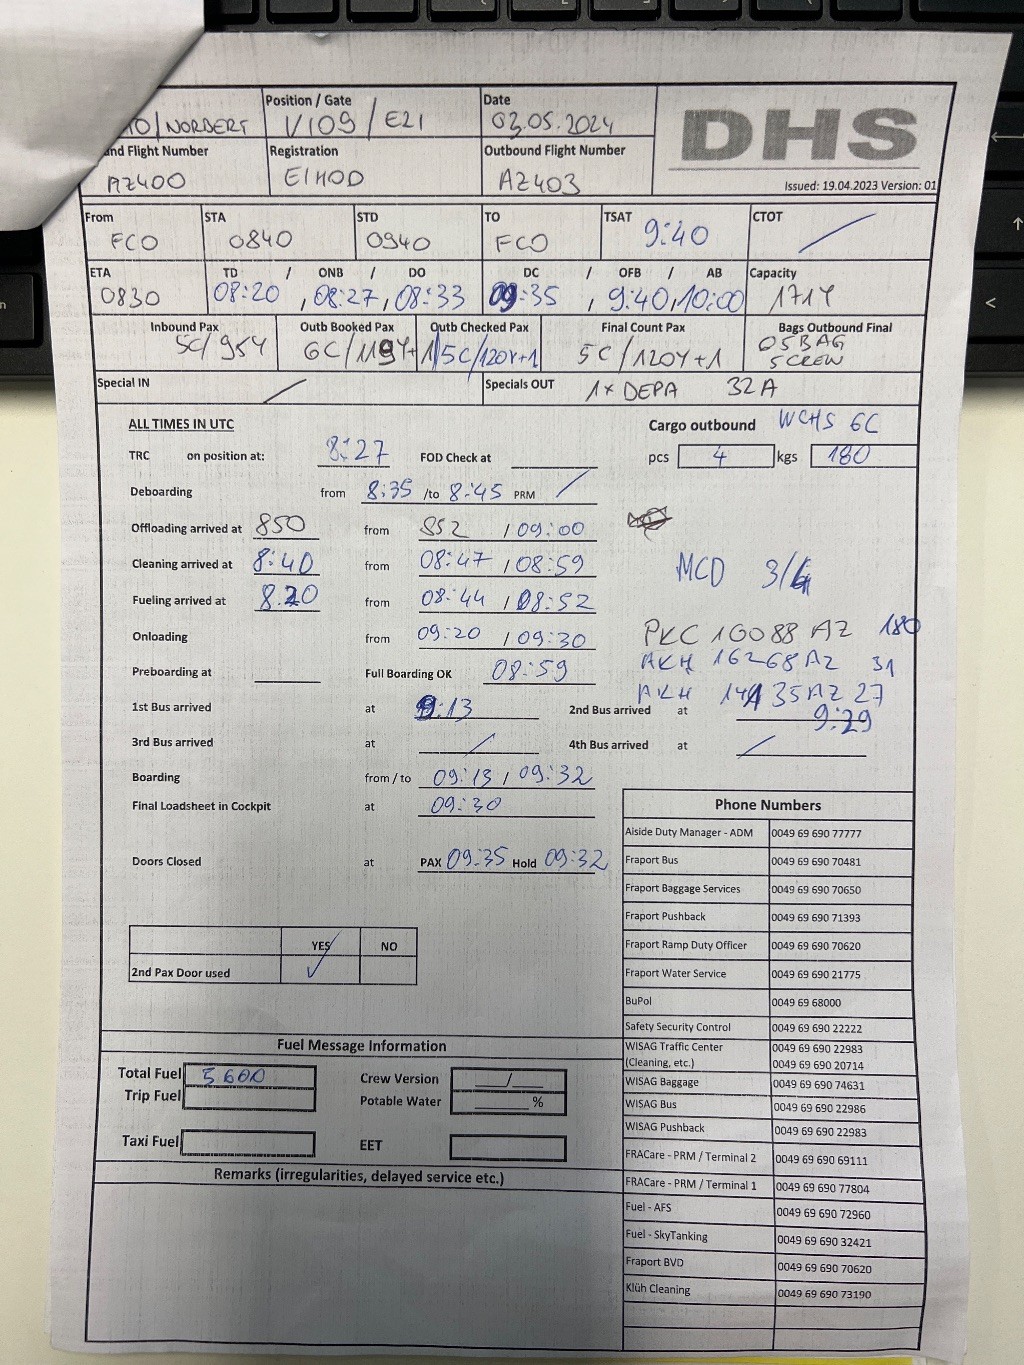 Position / Gate Date
/NORBERT V109 / E21 03.05.2024 DHS
Flight Number Registration Outbound Flight Number
AZ400 EIHOD AZ403 Issued: 19.04.2023 Version: 01
From STA STD TO TSAT CTOT
FCO 0840 0940 FCO 9:40 /
ETA TD / ONB / DO DC / OFB / AB Capacity
0830 08:20 , 08:27, 08:33 09:35 , 9:40, 10:00 171Y
Inbound Pax Outb Booked Pax Outb Checked Pax Final Count Pax Bags Outbound Final
5C/95Y 6C/119Y+1 5C/120Y+1 5C/120Y+1 05BAG
5CREW
Special IN / Specials OUT 1x DEPA 32A
ALL TIMES IN UTC Cargo outbound WCHS 6C
TRC on position at: 8:27 FOD Check at pcs 4 kgs 180
Deboarding from 8:35 /to 8:45 PRM /
Offloading arrived at 850 from 852 / 09:00
Cleaning arrived at 8:40 from 08:47 / 08:59 MCD 3/4
Fueling arrived at 8.20 from 08:44 / 08:52
Onloading from 09:20 / 09:30 PKC 10088 AZ 180
AKH 16268 AZ 31
Preboarding at Full Boarding OK 08:59
AKH AZ 27
1st Bus arrived at 9:13 2nd Bus arrived at 9:29
3rd Bus arrived at / 4th Bus arrived at /
Boarding from / to 09:13 / 09:32
Final Loadsheet in Cockpit at 09:30
Doors Closed at PAX 09:35 Hold 09:32
YES NO
2nd Pax Door used ✓
Phone Numbers
Aiside Duty Manager - ADM 0049 69 690 77777
Fraport Bus 0049 69 690 70481
Fraport Baggage Services 0049 69 690 70650
Fraport Pushback 0049 69 690 71393
Fraport Ramp Duty Officer 0049 69 690 70620
Fraport Water Service 0049 69 690 21775
BuPol 0049 69 68000
Safety Security Control 0049 69 690 22222
WISAG Traffic Center 0049 69 690 22983
(Cleaning, etc.) 0049 69 690 20714
WISAG Baggage 0049 69 690 74631
WISAG Bus 0049 69 690 22986
WISAG Pushback 0049 69 690 22983
FRACare - PRM / Terminal 2 0049 69 690 69111
FRACare - PRM / Terminal 1 0049 69 690 77804
Fuel - AFS 0049 69 690 72960
Fuel - SkyTanking 0049 69 690 32421
Fraport BVD 0049 69 690 70620
Klüh Cleaning 0049 69 690 73190
Fuel Message Information
Total Fuel 5600 Crew Version /
Trip Fuel Potable Water %
Taxi Fuel EET
Remarks (irregularities, delayed service etc.)